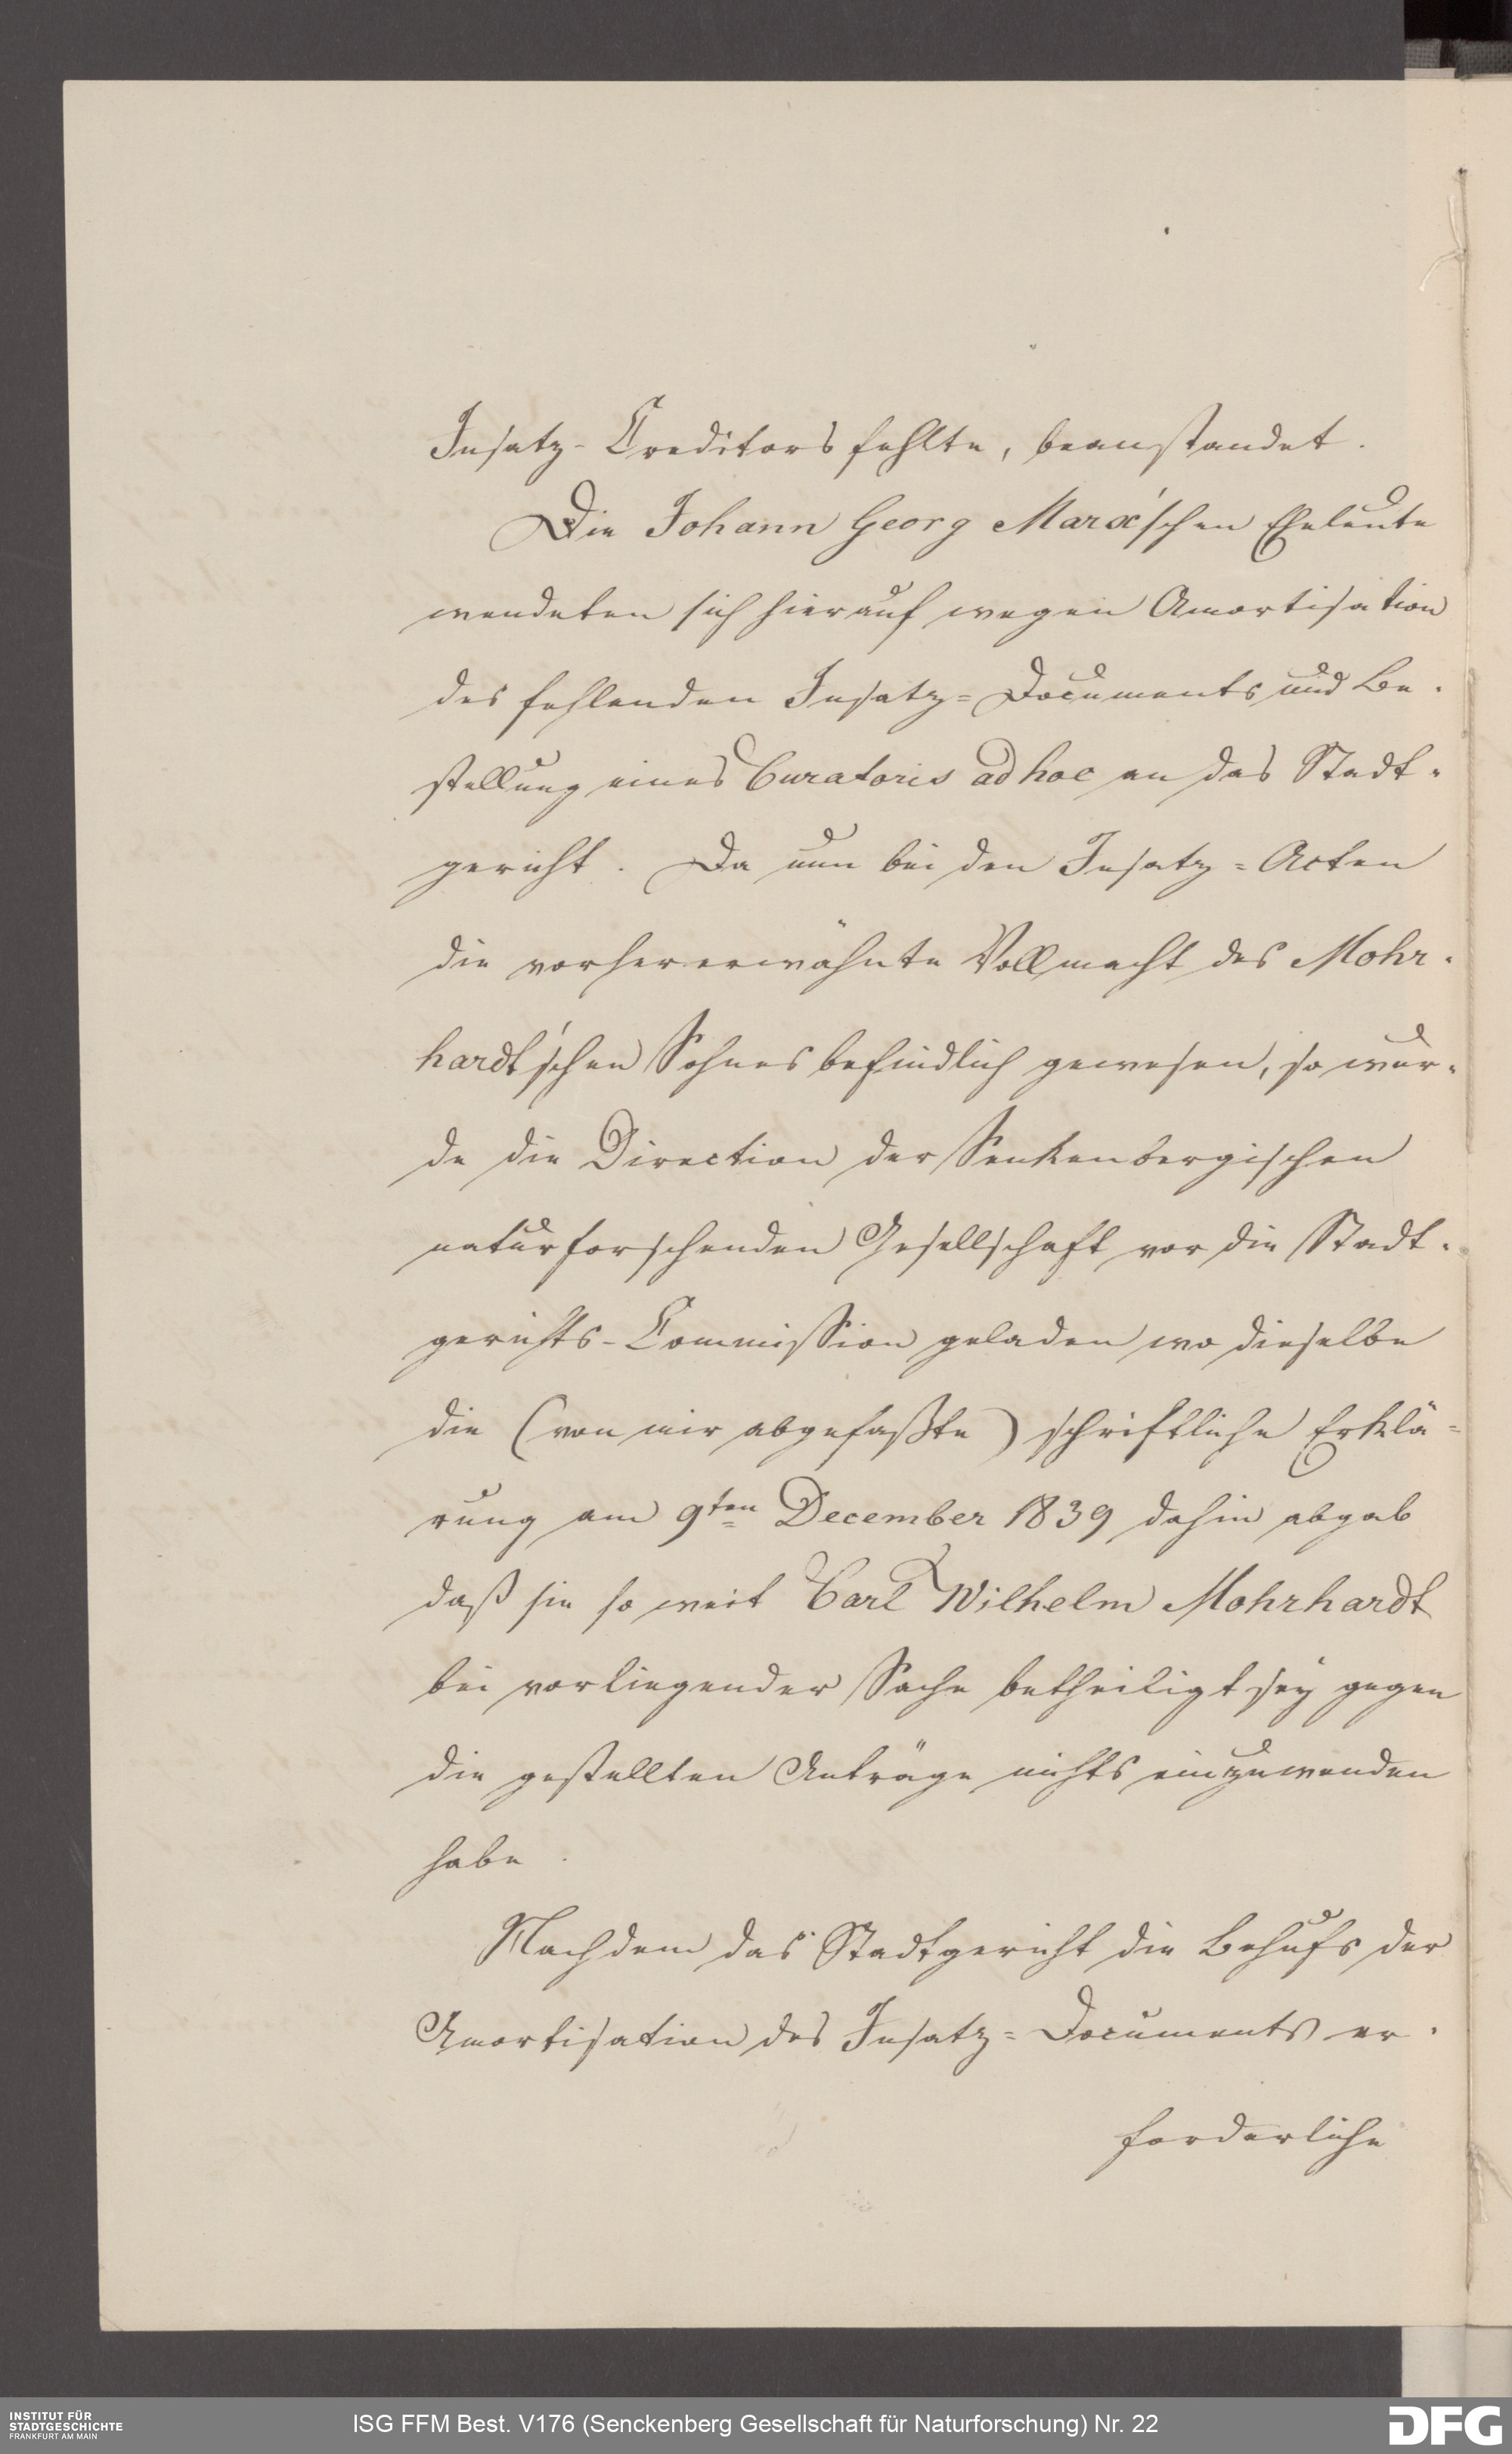 Insatz-Creditors fehlte, beanstandet.
Die Johann Georg Marx'schen Eheleute
wendeten sich hierauf wegen Amortisation
des fehlenden Insatz=Documents und Be-
stellung eines Curatoris ad hoc an das Stadt-
gericht. Da nun bei den Insatz=Acten
die vorhererwähnte Vollmacht des Mohr-
hardt'schen Sohnes befindlich gewesen, so wur-
de die Direction der Senkenbergischen
naturforschenden Gesellschaft vor die Stadt-
gerichts-Commission geladen wo dieselbe
die (von mir abgefaßte) schriftliche Erklä=
rung am 9ten December 1839 dahin abgab
daß sie so weit Carl Wilhelm Mohrhardt
bei vorliegender Sache betheiligt sey gegen
die gestellten Anträge nichts einzuwenden
habe.
Nachdem das Stadtgericht die Behufs der
Amortisation des Insatz=Documents er-
forderliche
INSTITUT FÜR
STADTGESCHICHTE
FRANKFURT AM MAIN
ISG FFM Best. V176 (Senckenberg Gesellschaft für Naturforschung) Nr. 22
DFG